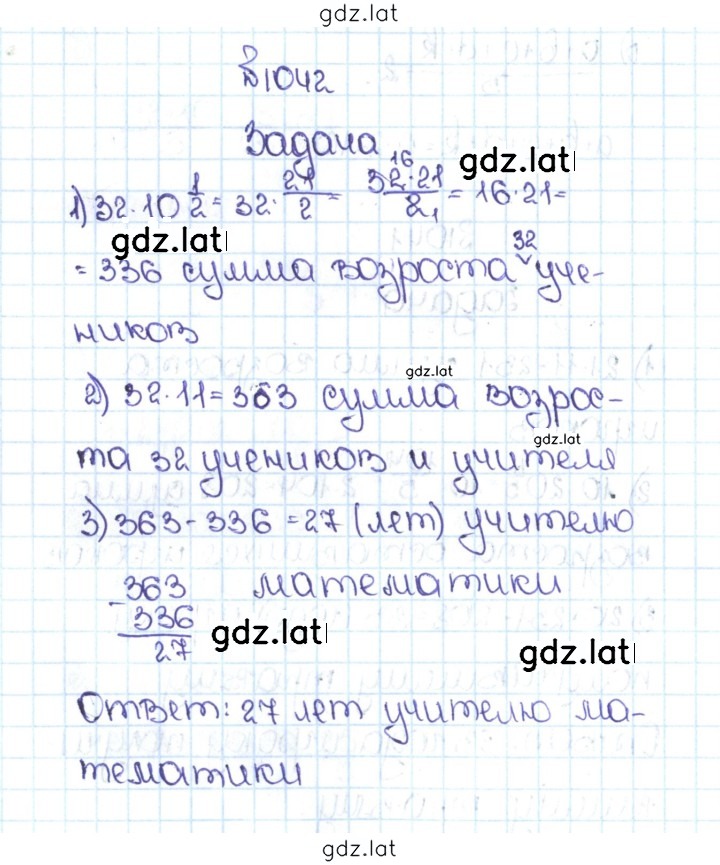 gdz.lat
№1042
Задача
1) 32·10 1/2 = 32· 21/2 = 32·21/2 16 1 = 16·21= gdz.lat
gdz.lat
= 336 сумма возроста 32 уче-
ников
gdz.lat
2) 32·11=363 сумма возрос-
gdz.lat
та 32 учеников и учителя
3) 363-336=27 (лет) учителю
363 математики
- 336
27
gdz.lat
gdz.lat
Ответ: 27 лет учителю ма-
тематики
gdz.lat